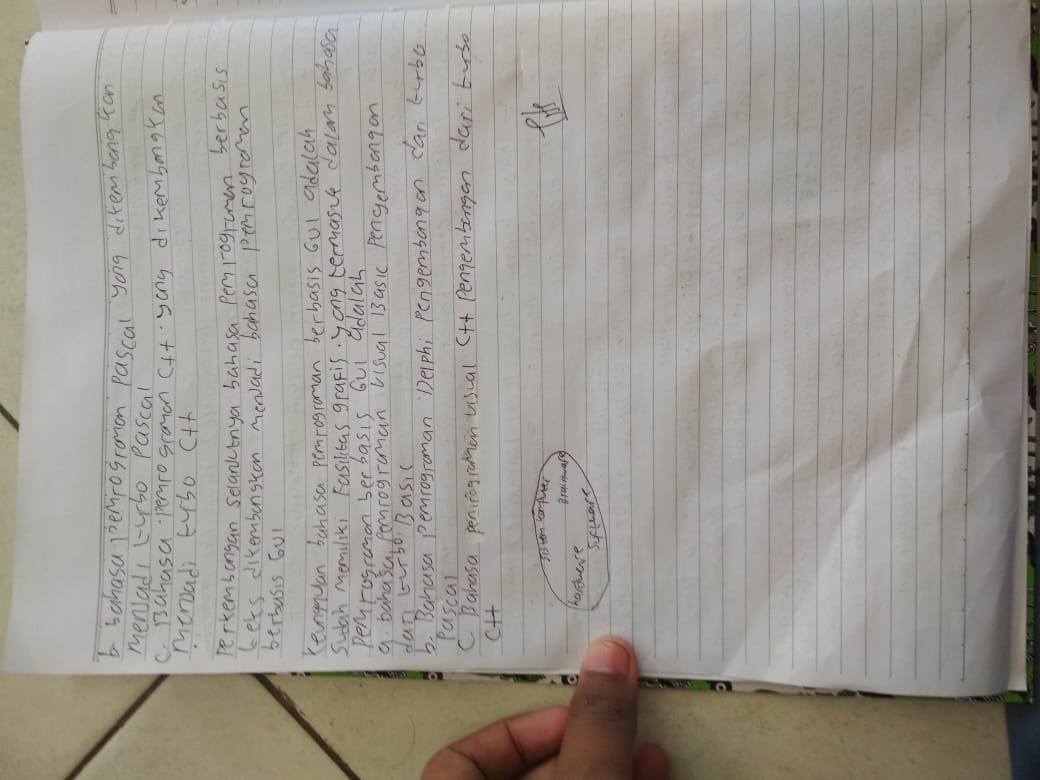 b. bahasa pemrograman Pascal yang dikembangkan
menjadi turbo Pascal
c. Bahasa pemrograman C++ yang dikembangkan
menjadi turbo C++
Perkembangan selanjutnya bahasa Pemrograman berbasis
teks dikembangkan menjadi bahasa pemrograman
berbasis GUI
Keunggulan bahasa pemrograman berbasis GUI adalah
sudah memiliki Fasilitas grafis. yang termasuk dalam bahasa
pemrograman berbasis GUI adalah
a. bahasa pemrograman Visual Basic pengembangan
dari turbo Basic
b. Bahasa pemrograman Delphi Pengembangan dari turbo
Pascal
C. Bahasa pemrograman visual C++ Pengembangan dari turbo
C++
sistem komputer
Brainware
hardware
Software